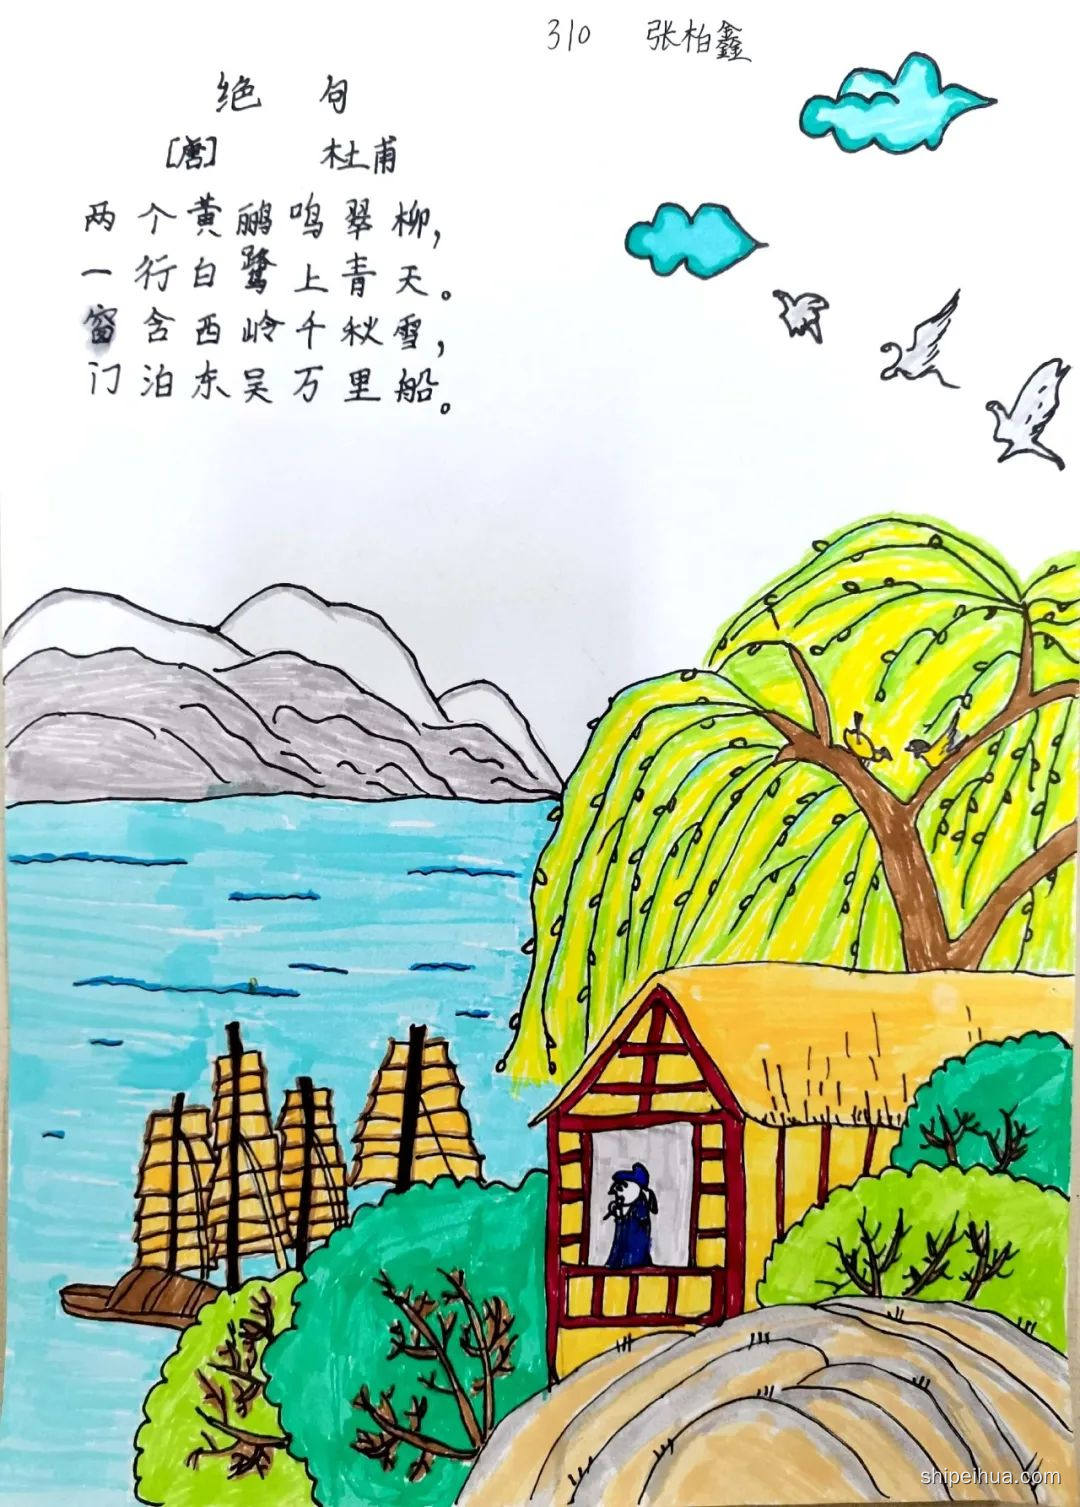 310 张柏鑫
绝 句
[唐] 杜甫
两个黄鹂鸣翠柳，
一行白鹭上青天。
窗含西岭千秋雪，
门泊东吴万里船。
shipeihua.com